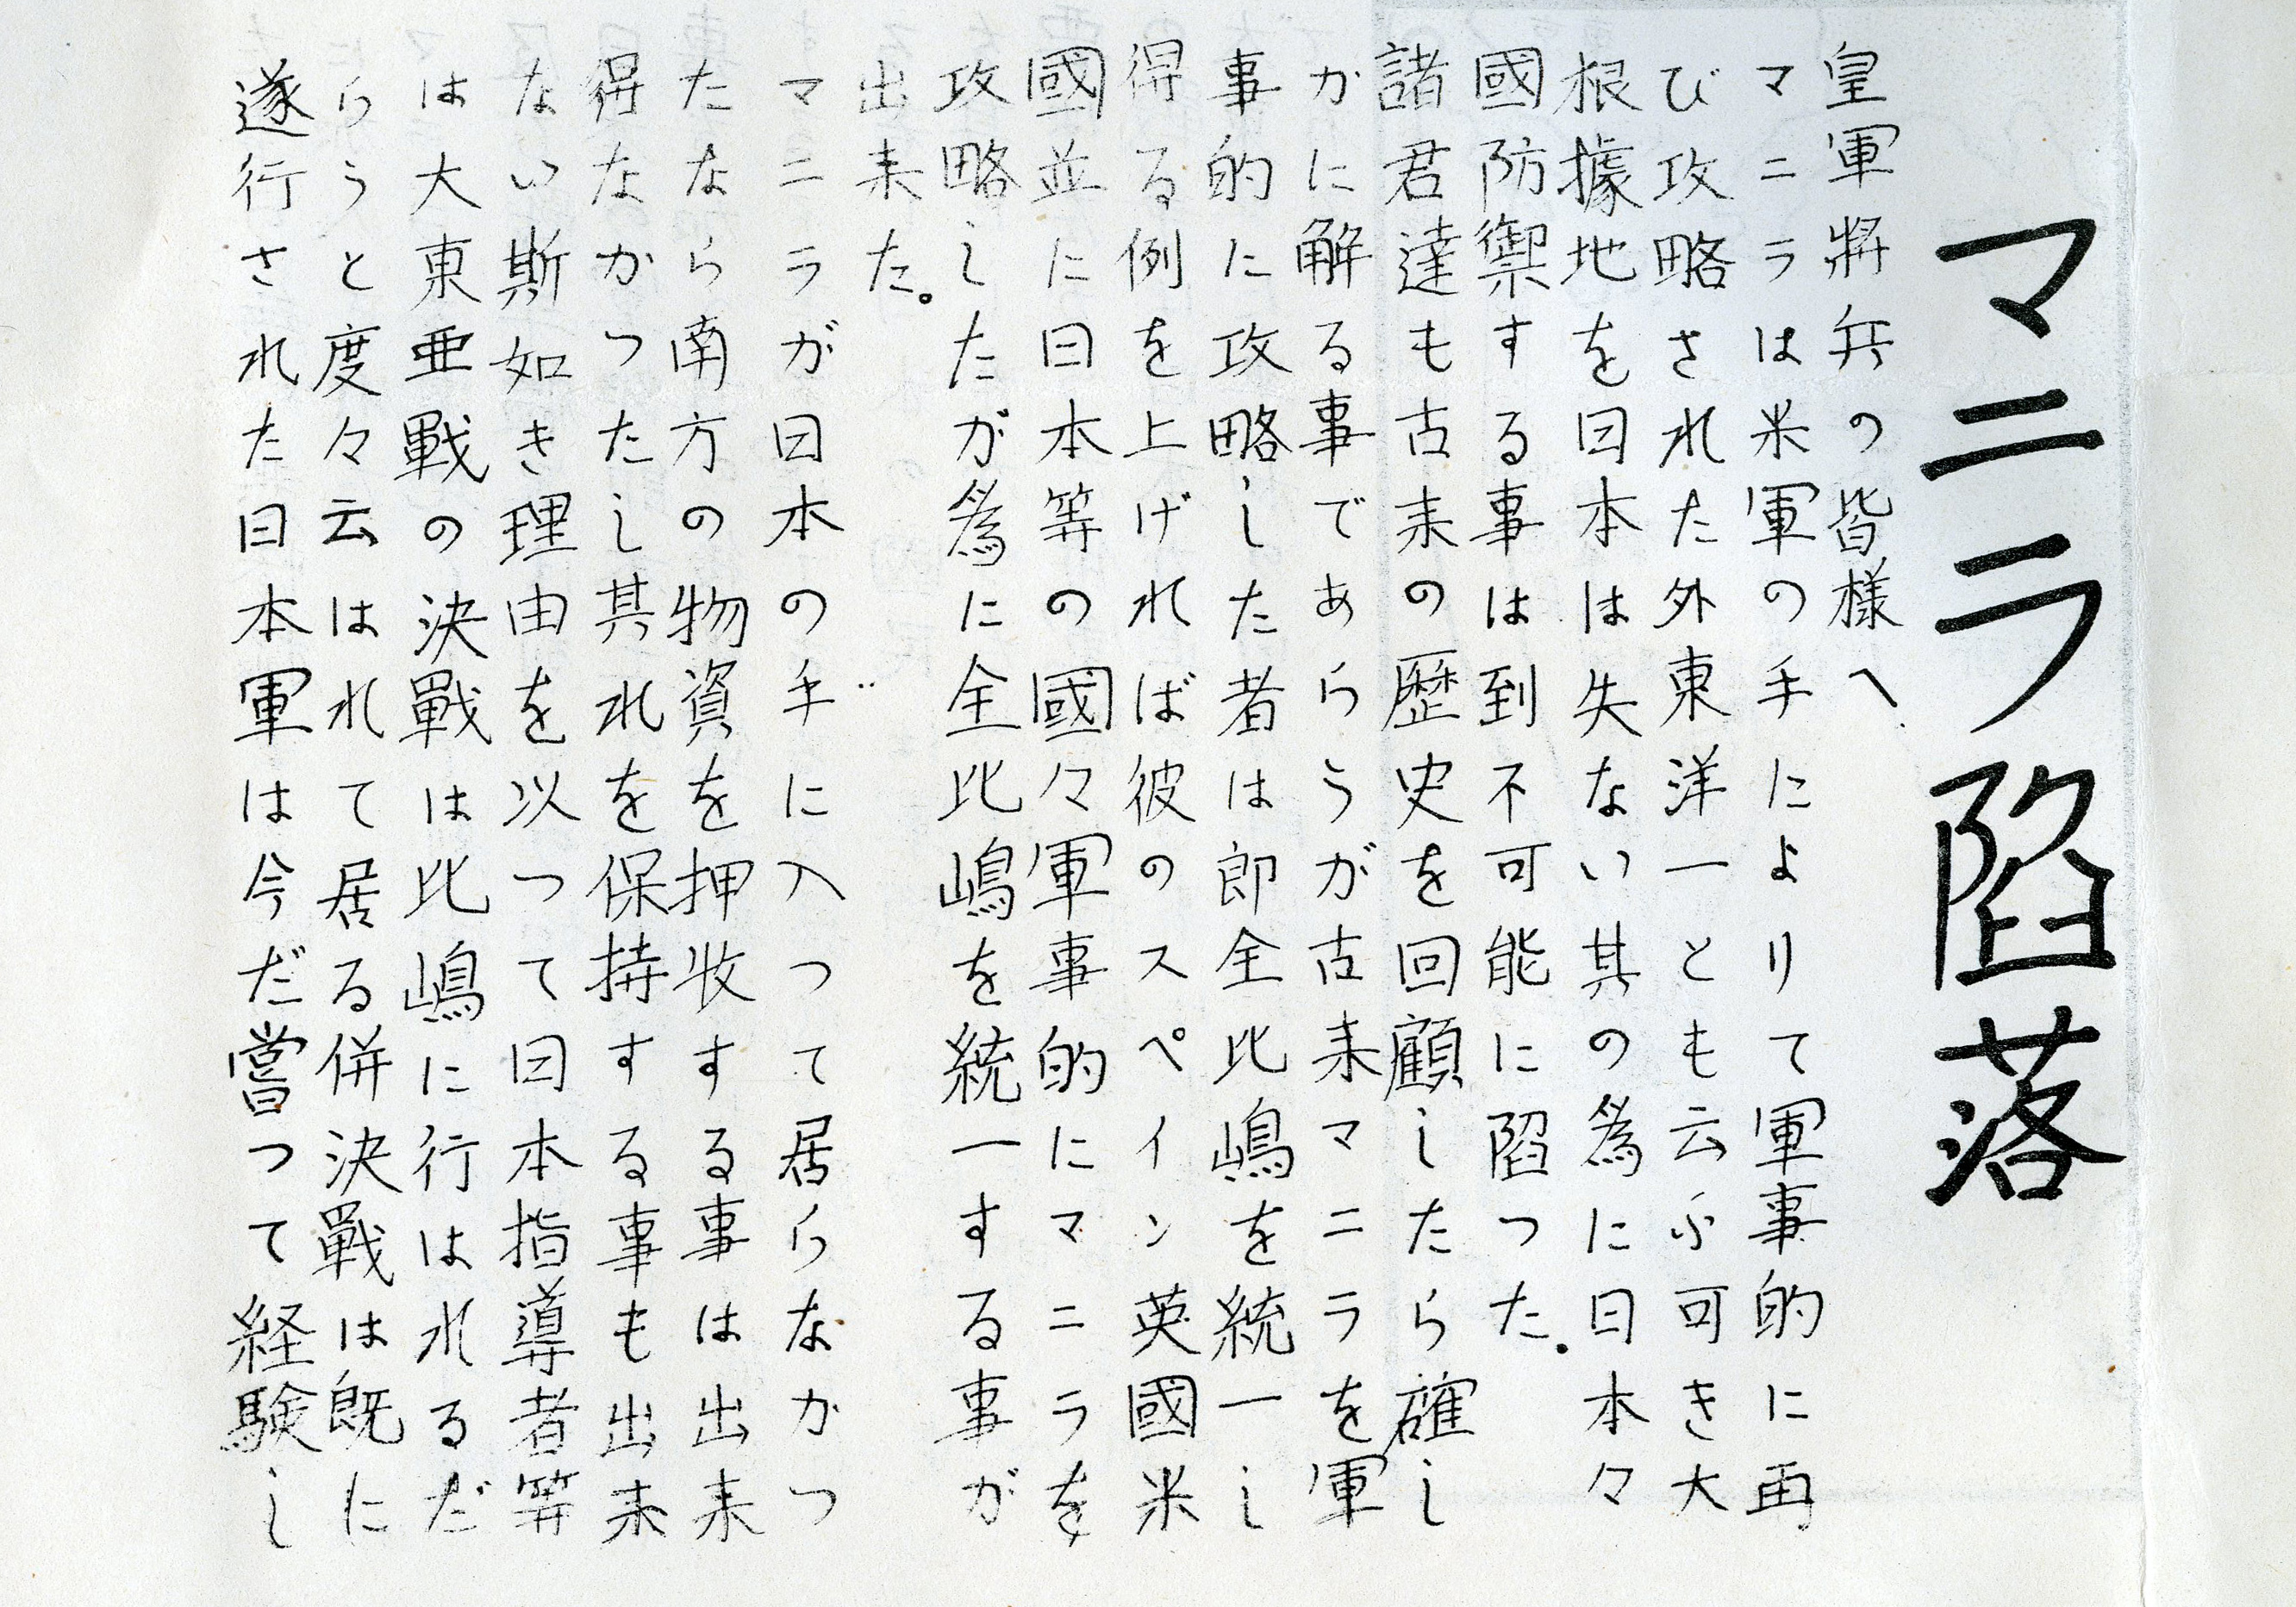 マニラ陷落
皇軍將兵の皆様へ
マニラは米軍の手によりて軍事的に再
び攻略された外東洋一とも云ふ可き大
根據地を日本は失ない其の為に日本々
國防禦する事は到不可能に陷つた。
諸君達も古来の歴史を回顧したら確し
かに解る事であらうが古来マニラを軍
事的に攻略した者は即全比嶋を統一し
得る例を上げれば彼のスペイン英國米
國並に日本等の國々軍事的にマニラを
攻略したが為に全比嶋を統一する事が
出来た。
マニラが日本の手に入つて居らなかつ
たなら南方の物資を押收する事は出来
得なかつたし其れを保持する事も出来
ない斯如き理由を以つて日本指導者等
は大東亜戰の決戰は比嶋に行はれるだ
らうと度々云はれて居る併決戰は既に
遂行された日本軍は今だ嘗つて経験し